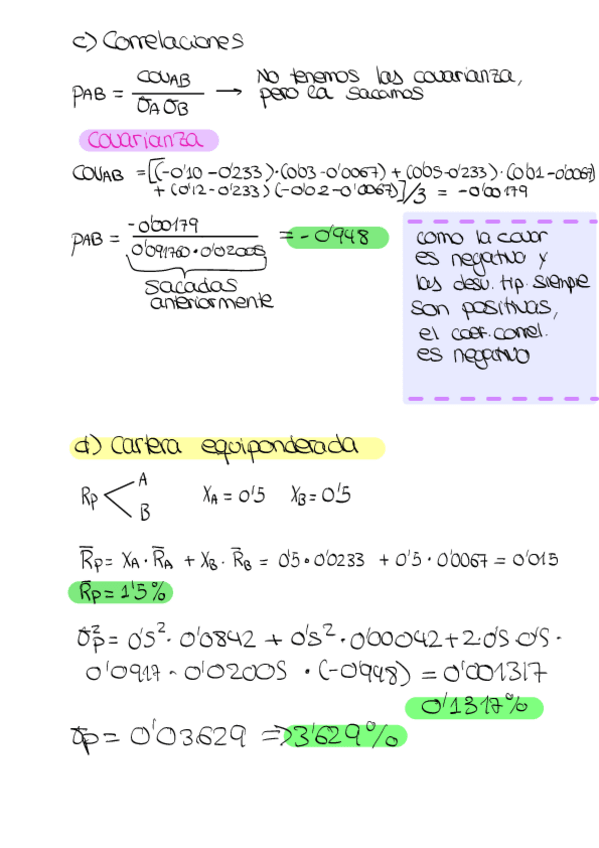 c) Correlaciones
ρAB = COVAB / σA σB → No tenemos las covarianza,
pero la sacamos
Covarianza
COVAB = [(-0'10 - 0'233)·(0'03 - 0'0067) + (0'05 - 0'233)·(0'01 - 0'0067)
+ (0'12 - 0'233)(-0'02 - 0'0067)]/3 = -0'00179
ρAB = -0'00179 / 0'091760 · 0'02005 = -0'948
sacadas
anteriormente
como la covar
es negativo y
las desv. tip. siempre
son positivas,
el coef. correl.
es negativo
d) Cartera equiponderada
Rp < A
B
XA = 0'5 XB = 0'5
R̄p = XA · R̄A + XB · R̄B = 0'5 · 0'0233 + 0'5 · 0'0067 = 0'015
R̄p = 1'5%
σp² = 0'5² · 0'0842 + 0'5² · 0'00042 + 2·0'5 0'5 ·
0'0917 · 0'02005 · (-0'948) = 0'001317
0'1317%
σp = 0'03629 ⇒ 3'629%